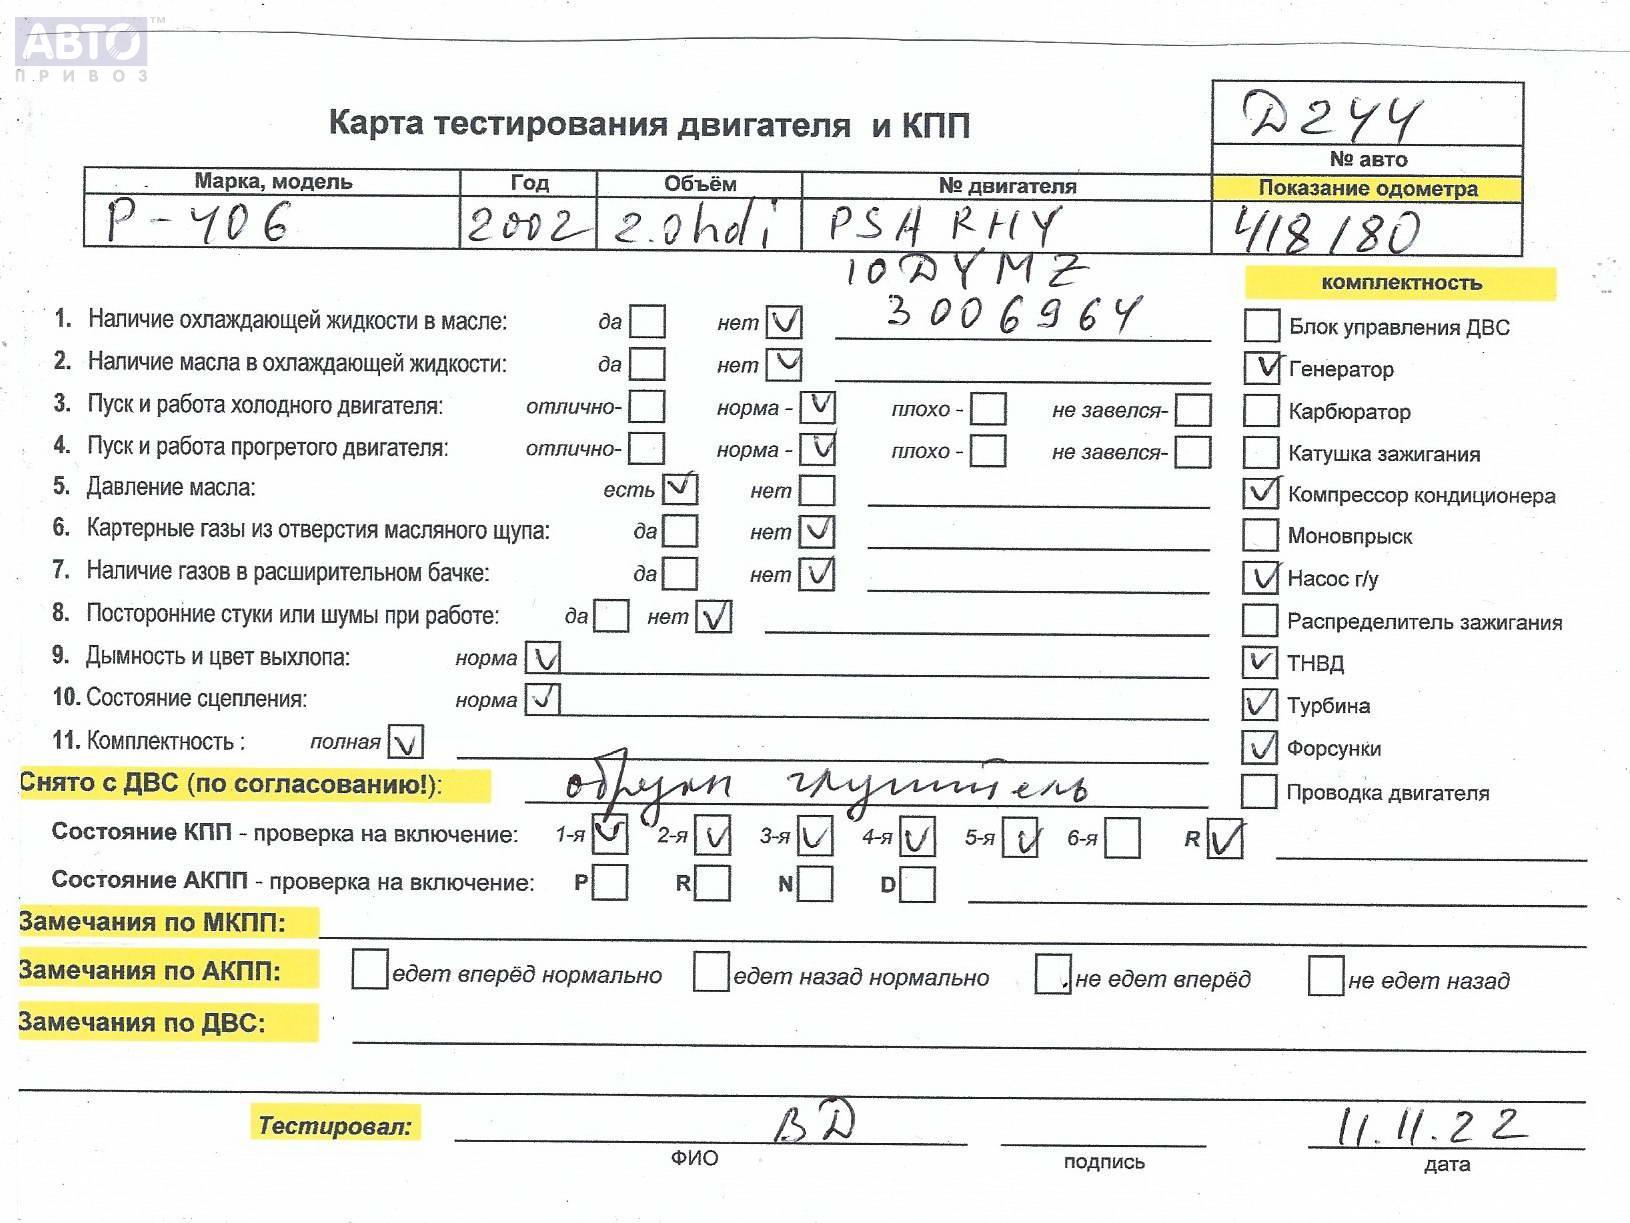 АВТО™
ПРИВОЗ
Карта тестирования двигателя и КПП
D244
№ авто
Марка, модель Год Объём № двигателя Показание одометра
P-406 2002 2.0hdi PSA RHY 418180
10DYMZ
3006964
комплектность
1. Наличие охлаждающей жидкости в масле: да нет
2. Наличие масла в охлаждающей жидкости: да нет
3. Пуск и работа холодного двигателя: отлично- норма - плохо - не завелся-
4. Пуск и работа прогретого двигателя: отлично- норма - плохо - не завелся-
5. Давление масла: есть нет
6. Картерные газы из отверстия масляного щупа: да нет
7. Наличие газов в расширительном бачке: да нет
8. Посторонние стуки или шумы при работе: да нет
9. Дымность и цвет выхлопа: норма
10. Состояние сцепления: норма
11. Комплектность : полная
Блок управления ДВС
Генератор
Карбюратор
Катушка зажигания
Компрессор кондиционера
Моновпрыск
Насос г/у
Распределитель зажигания
ТНВД
Турбина
Форсунки
Проводка двигателя
Снято с ДВС (по согласованию!): обрезан глушитель
Состояние КПП - проверка на включение: 1-я 2-я 3-я 4-я 5-я 6-я R
Состояние АКПП - проверка на включение: P R N D
Замечания по МКПП:
Замечания по АКПП: едет вперёд нормально едет назад нормально не едет вперёд не едет назад
Замечания по ДВС:
Тестировал: ВД 11.11.22
ФИО подпись дата